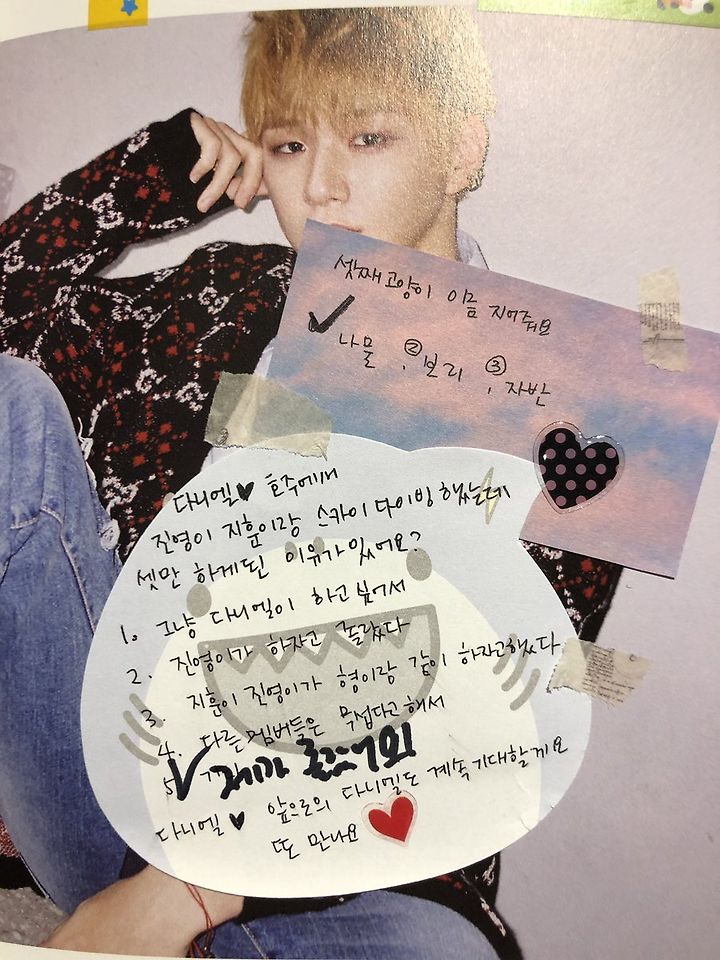 셋째고양이 이름 지어줘요
✓ 나물 ② 보리 ③ 자반
다니엘♥ 호주에서
진영이 지훈이랑 스카이다이빙 했는데
셋만 하게된 이유가 있어요?
1. 그냥 다니엘이 하고싶어서
2. 진영이가 하자고 졸랐다
3. 지훈이 진영이가 형이랑 같이 하자고했다
4. 다른멤버들은 무섭다고해서
5. ✓ 제가
다니엘♥ 앞으로의 다니엘도 계속 기대할게요
또 만나요